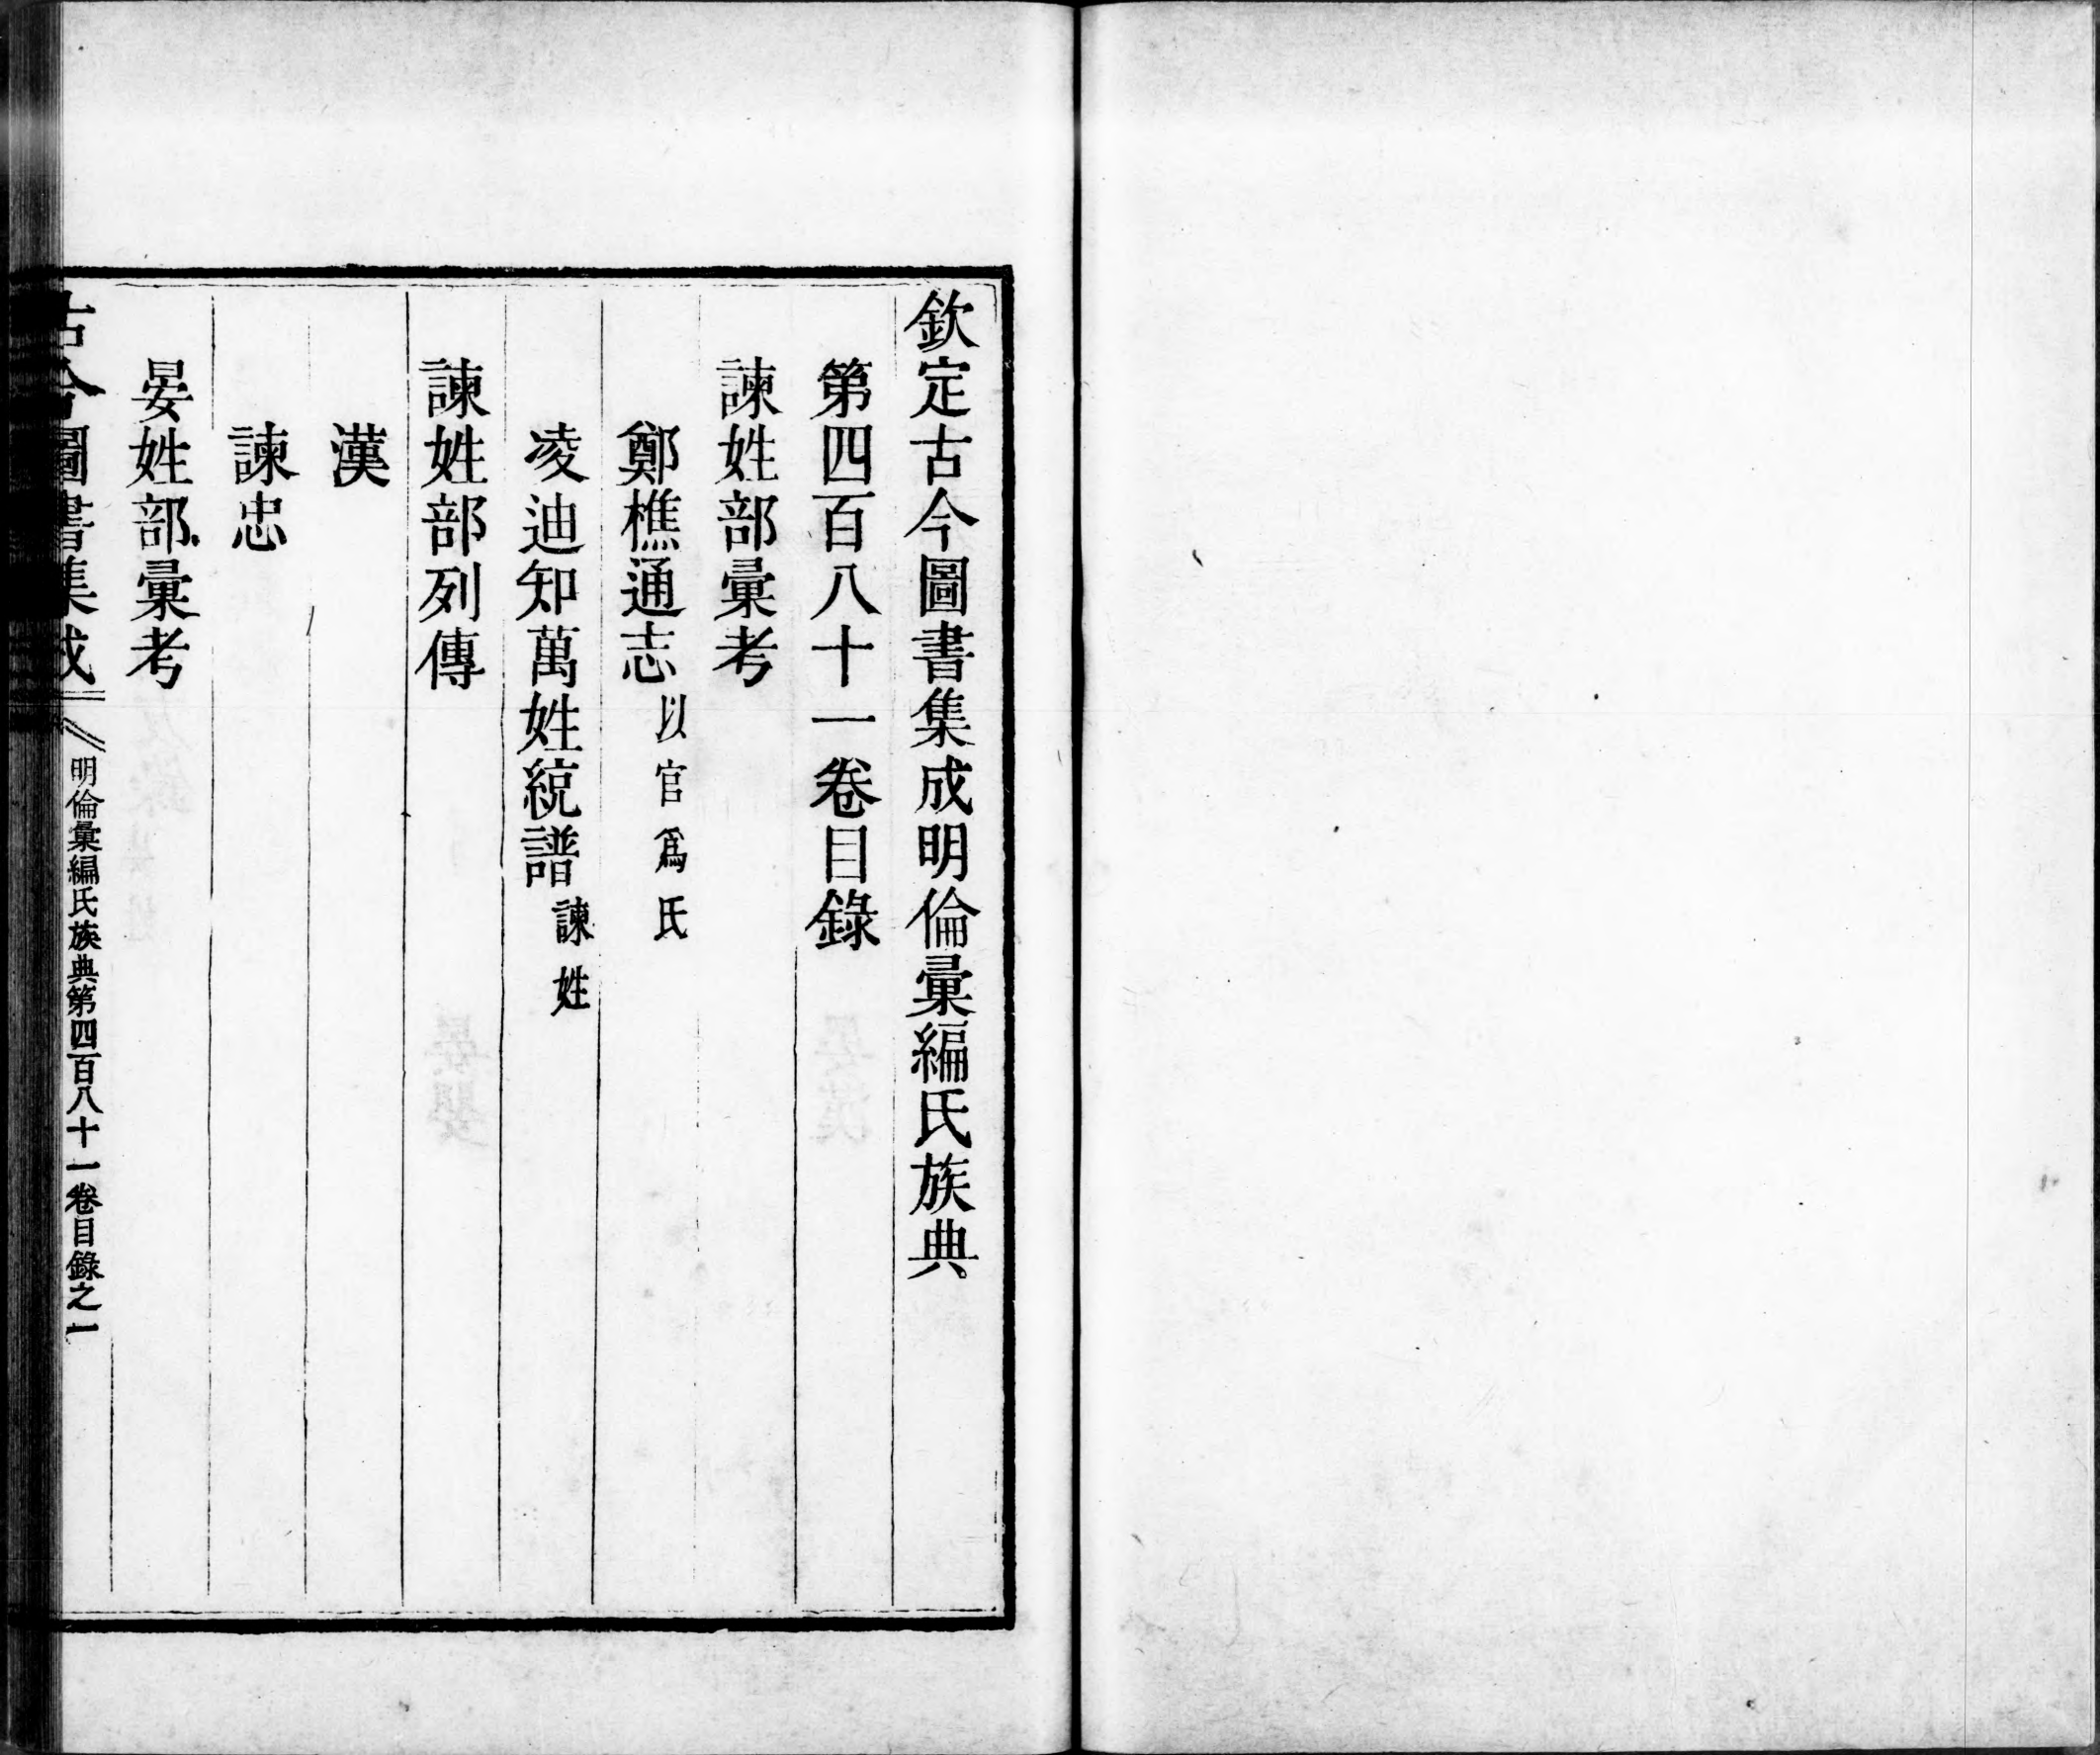 欽定古今圖書集成明倫彙編氏族典
第四百八十一卷目錄
諫姓部彙考
鄭樵通志以官爲氏
凌迪知萬姓統譜諫姓
諫姓部列傳
漢
諫忠
晏姓部彙考
古今圖書集成
明倫彙編氏族典第四百八十一卷目錄之一